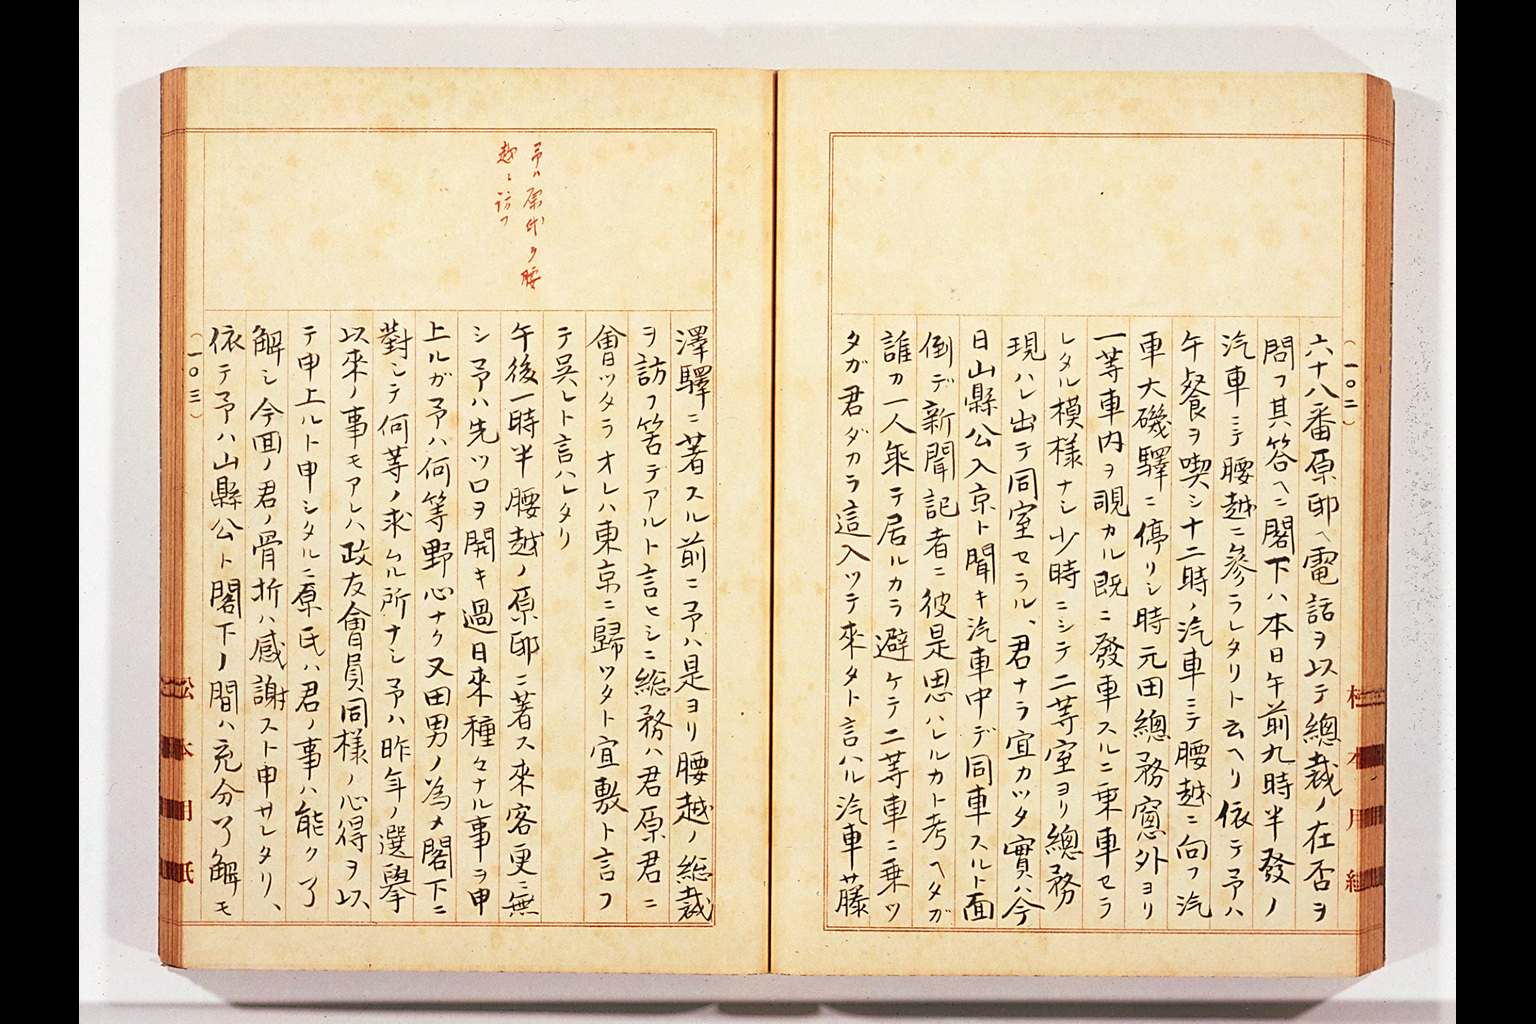 (一〇二)
六十八番原邸ヘ電話ヲ以テ總裁ノ在否ヲ
問フ其答ヘニ閣下ハ本日午前九時半發ノ
汽車ミテ腰越ニ參ラレタリト云ヘリ依テ予ハ
午餐ヲ喫シ十二時ノ汽車ミテ腰越ニ向フ汽
車大磯驛ニ停リシ時元田總務窓外ヨリ
一等車内ヲ覗カル既ニ發車スルニ乗車セラ
レタル模様ナシ少時ニシテ二等室ヨリ總務
現ハレ出テ同室セラル、君ナラ宜カッタ實ハ今
日山縣公入京ト聞キ汽車中デ同車スルト面
倒デ新聞記者ニ彼是思ハレルカト考ヘタガ
誰カ一人乘テ居ルカラ避ケテ二等車ニ乗ッ
タガ君ダカラ這入ッテ來タト言ハル汽車藤
松本用紙
予ハ原氏ヲ腰
越ニ訪フ
澤驛ニ著スル前ニ予ハ是ヨリ腰越ノ総裁
ヲ訪フ筈デアルト言ヒシニ総務ハ君原君ニ
會ッタラオレハ東京ニ歸ッタト宜敷ト言フ
テ呉レト言ハレタリ
午後一時半腰越ノ原邸ニ著ス來客更ニ無
シ予ハ先ツ口ヲ開キ過日來種々ナル事ヲ申
上ルガ予ハ何等野心ナク又田男ノ為メ閣下ニ
對シテ何等ノ求ムル所ナシ予ハ昨年ノ選擧
以來ノ事モアレハ政友會員同様ノ心得ヲ以
テ申上ルト申シタルニ原氏ハ君ノ事ハ能ク了
解シ今回ノ君ノ骨折ハ感謝スト申サレタリ、
依テ予ハ山縣公ト閣下ノ間ハ充分了解モ
(一〇三)
松本用紙